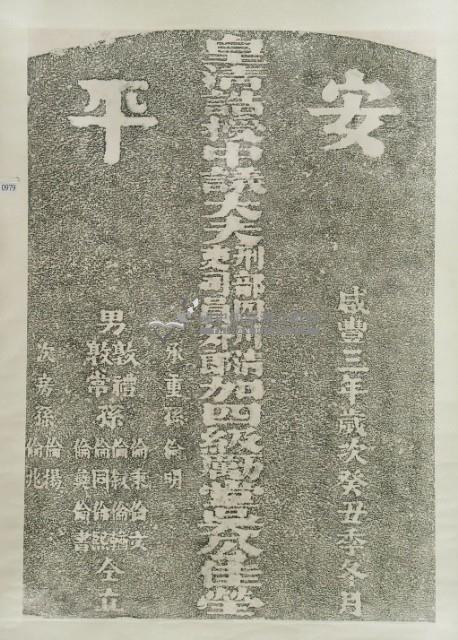 安平
咸豐三年歲次癸丑季冬月
皇清誥授中議大夫刑部四川清吏司員外郎加四級勤堂吳公佳塋
承重孫倫明
男敦禮
敦常
孫
倫秉 倫文
倫叙
倫同 倫熙
倫奠 倫書
仝立
次房孫倫揚
倫兆
0979